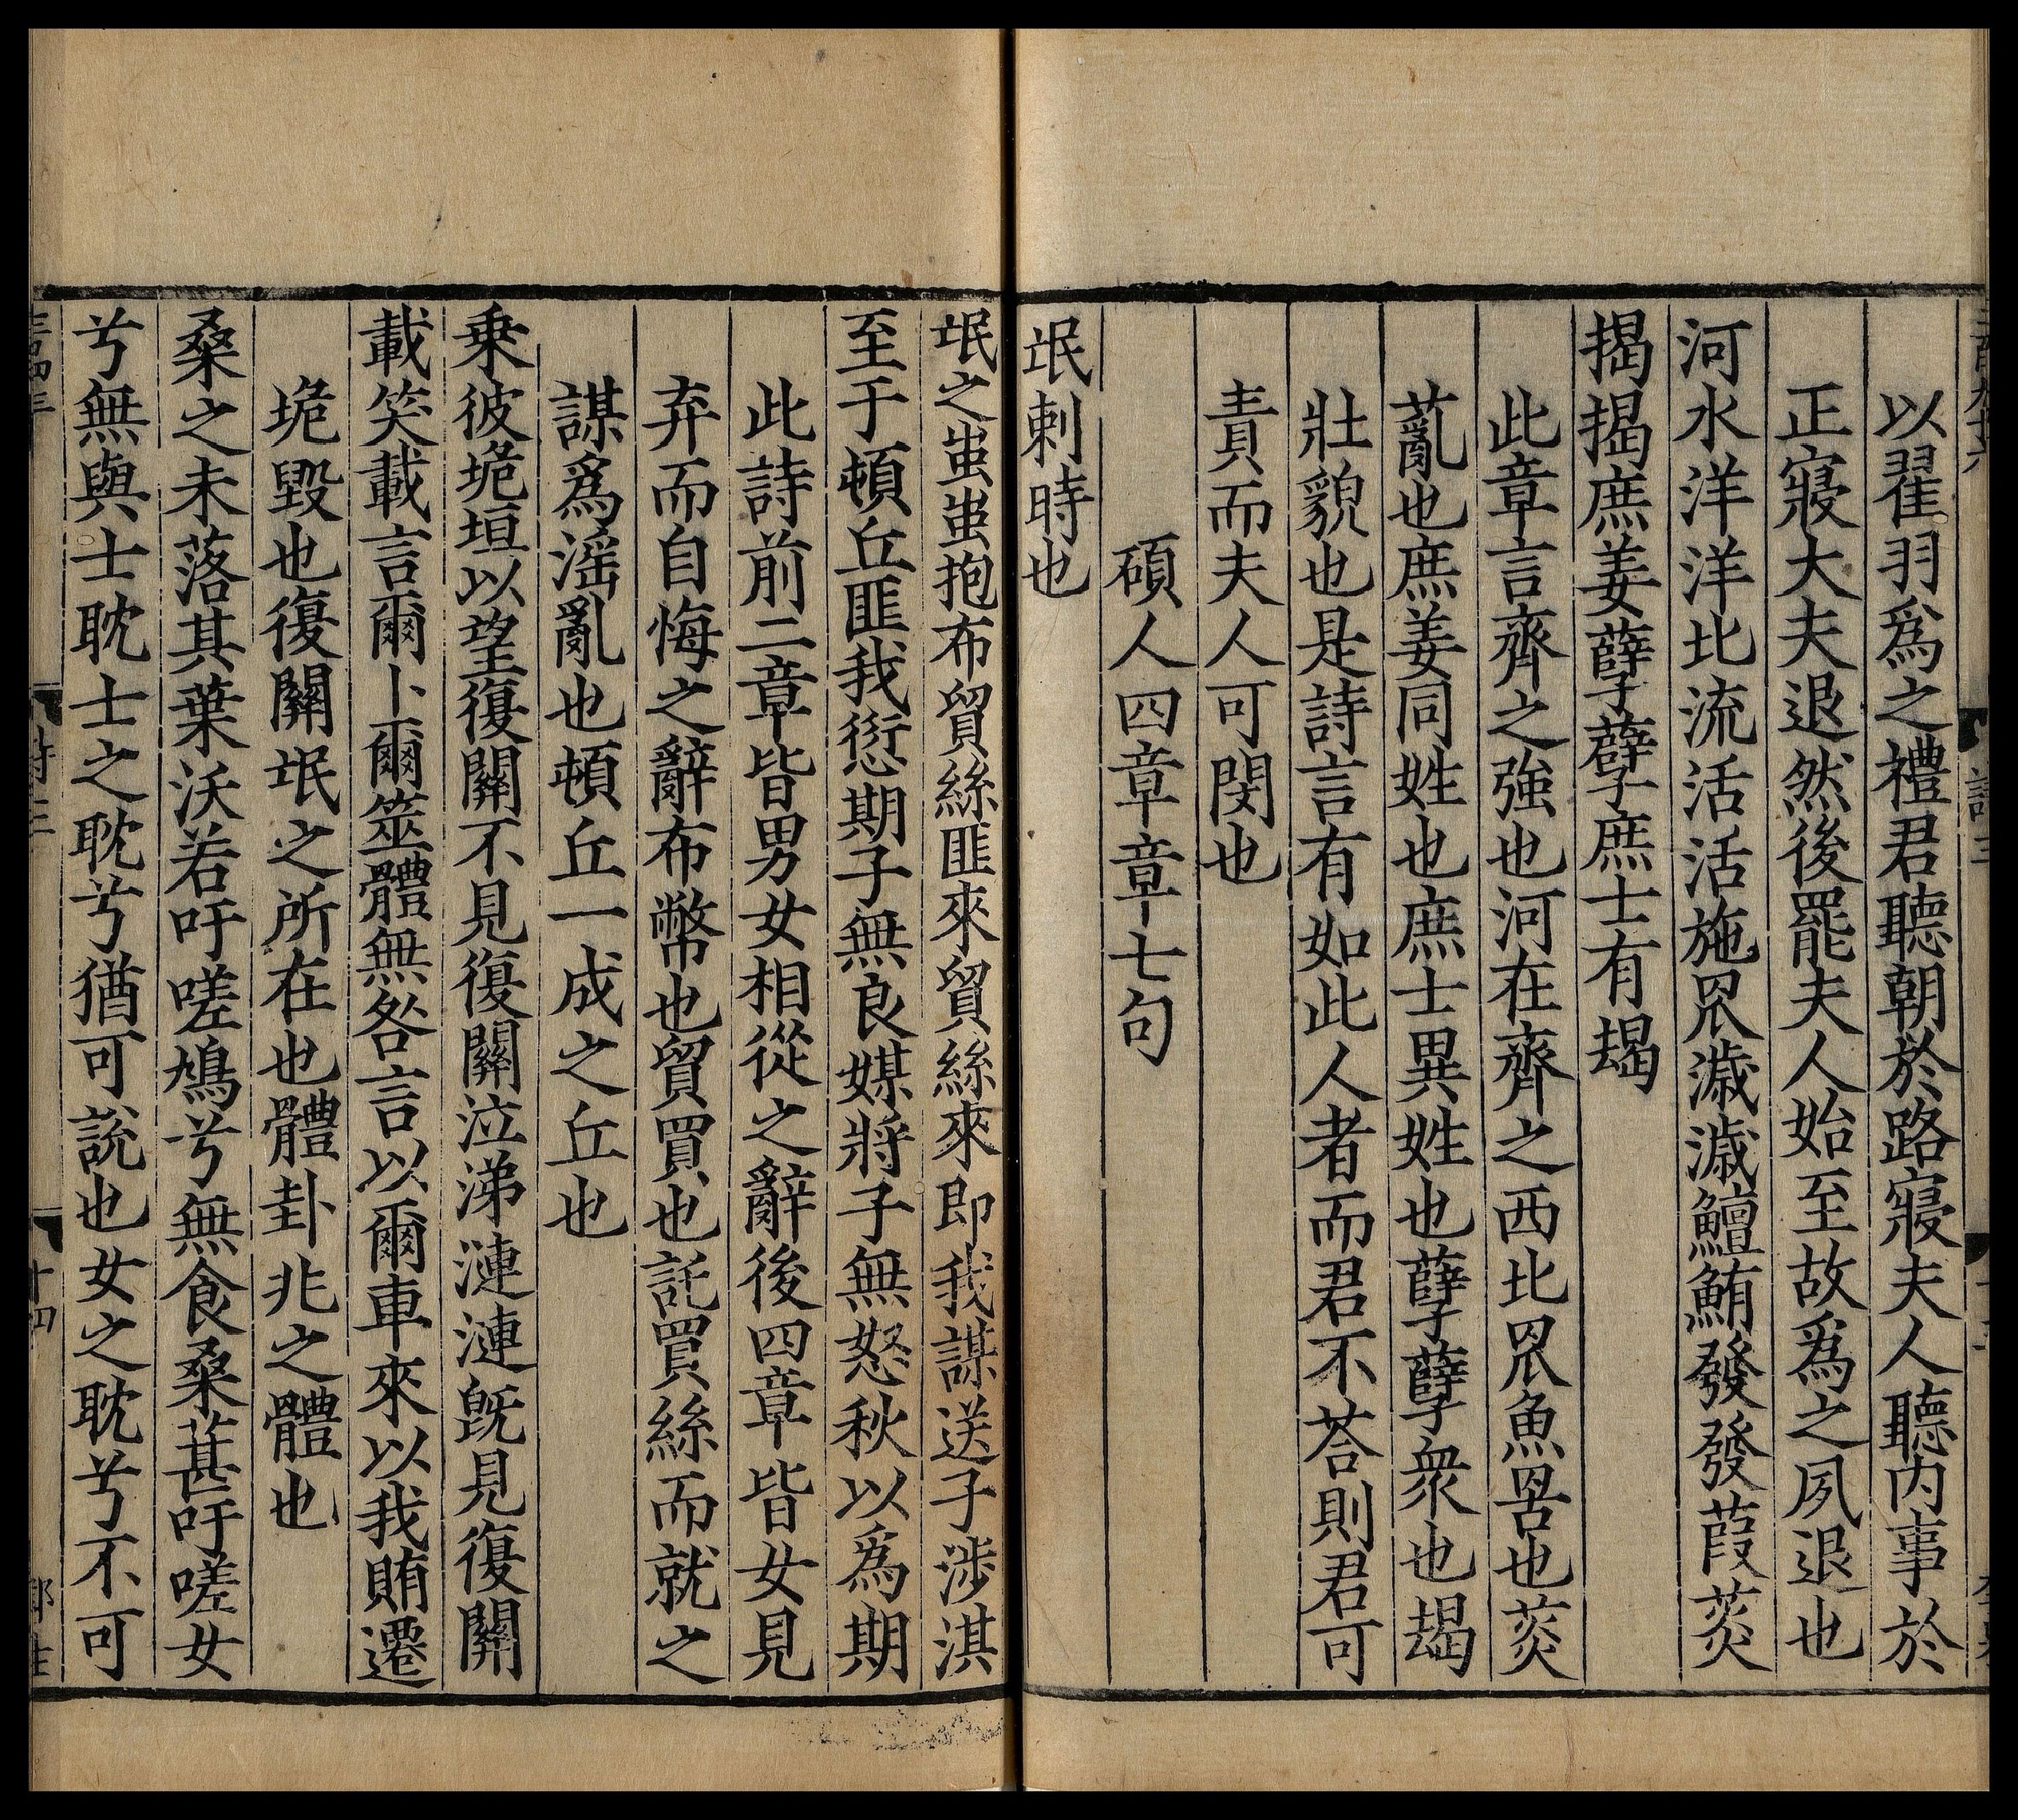 以翟羽爲之禮君聽朝於路寢夫人聽内事於
正寢大夫退然後罷夫人始至故爲之夙退也
河水洋洋北流活活施罛濊濊鱣鮪發發葭菼
揭揭庶姜孽孽庶士有朅
此章言齊之強也河在齊之西北罛魚罟也菼
薍也庶姜同姓也庶士異姓也孽孽衆也朅
壯貌也是詩言有如此人者而君不荅則君可
責而夫人可閔也
碩人四章章七句
氓刺時也
氓之蚩蚩抱布貿絲匪來貿絲來即我謀送子涉淇
至于頓丘匪我愆期子無良媒將子無怒秋以爲期
此詩前二章皆男女相從之辭後四章皆女見
弃而自悔之辭布幣也貿買也託買絲而就之
謀爲滛亂也頓丘一成之丘也
乗彼垝垣以望復關不見復關泣涕漣漣旣見復關
載笑載言爾卜爾筮體無咎言以爾車來以我賄遷
垝毀也復關氓之所在也體卦兆之體也
桑之未落其葉沃若吁嗟鳩兮無食桑葚吁嗟女
兮無與士耽士之耽兮猶可說也女之耽兮不可